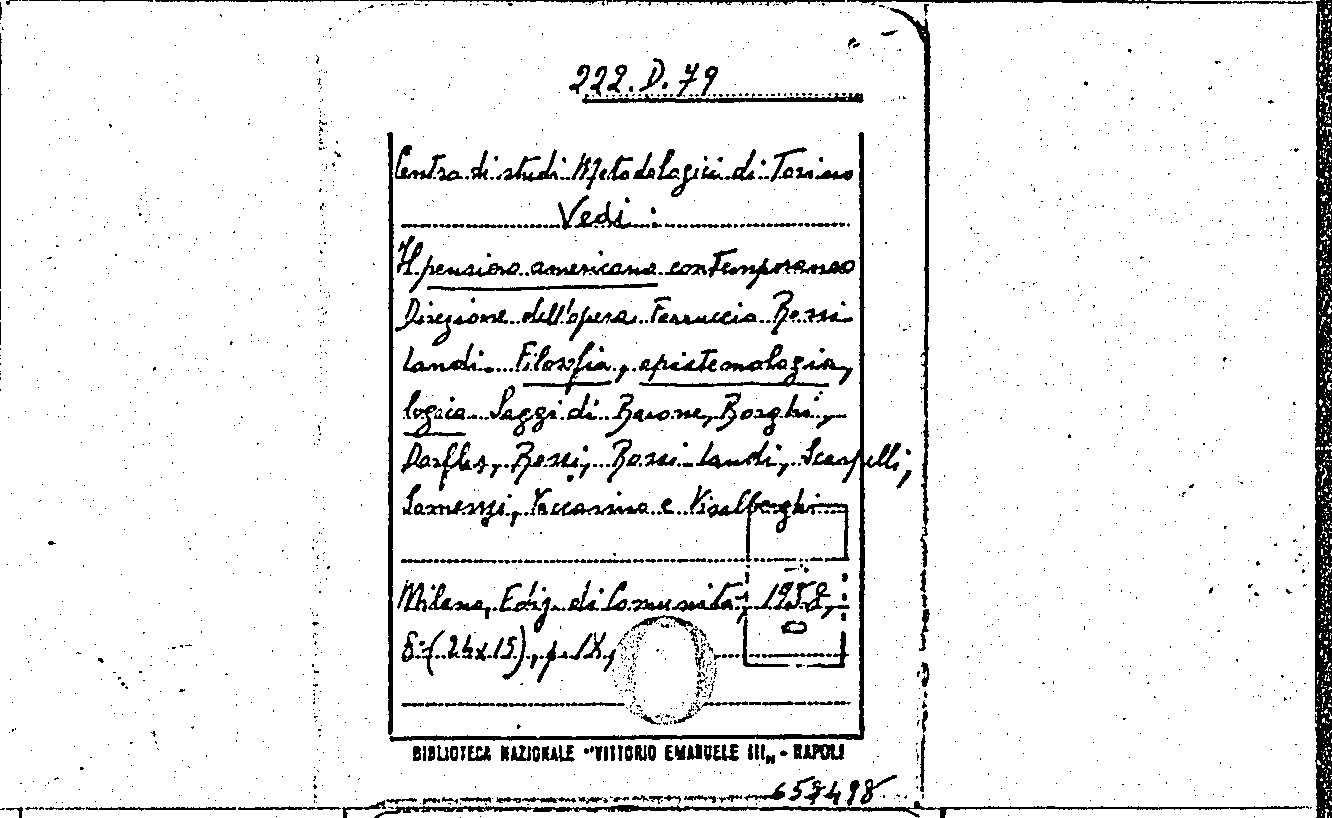 222.D.79
Centro di studi Metodologici di Torino
Vedi :
Il pensiero americano contemporaneo
Direzione dell'opera Ferruccio Rossi
Landi. Filosofia, epistemologia,
logica Saggi di Barone, Borghi,
Dorfles, Rossi, Rossi-Landi, Scarpelli,
Somenzi, Vaccarino e Visalberghi
Milano, Ediz. di Comunità, 1958,
8° (24x15), p. IX,
BIBLIOTECA NAZIONALE "VITTORIO EMANUELE III„ - NAPOLI
657498